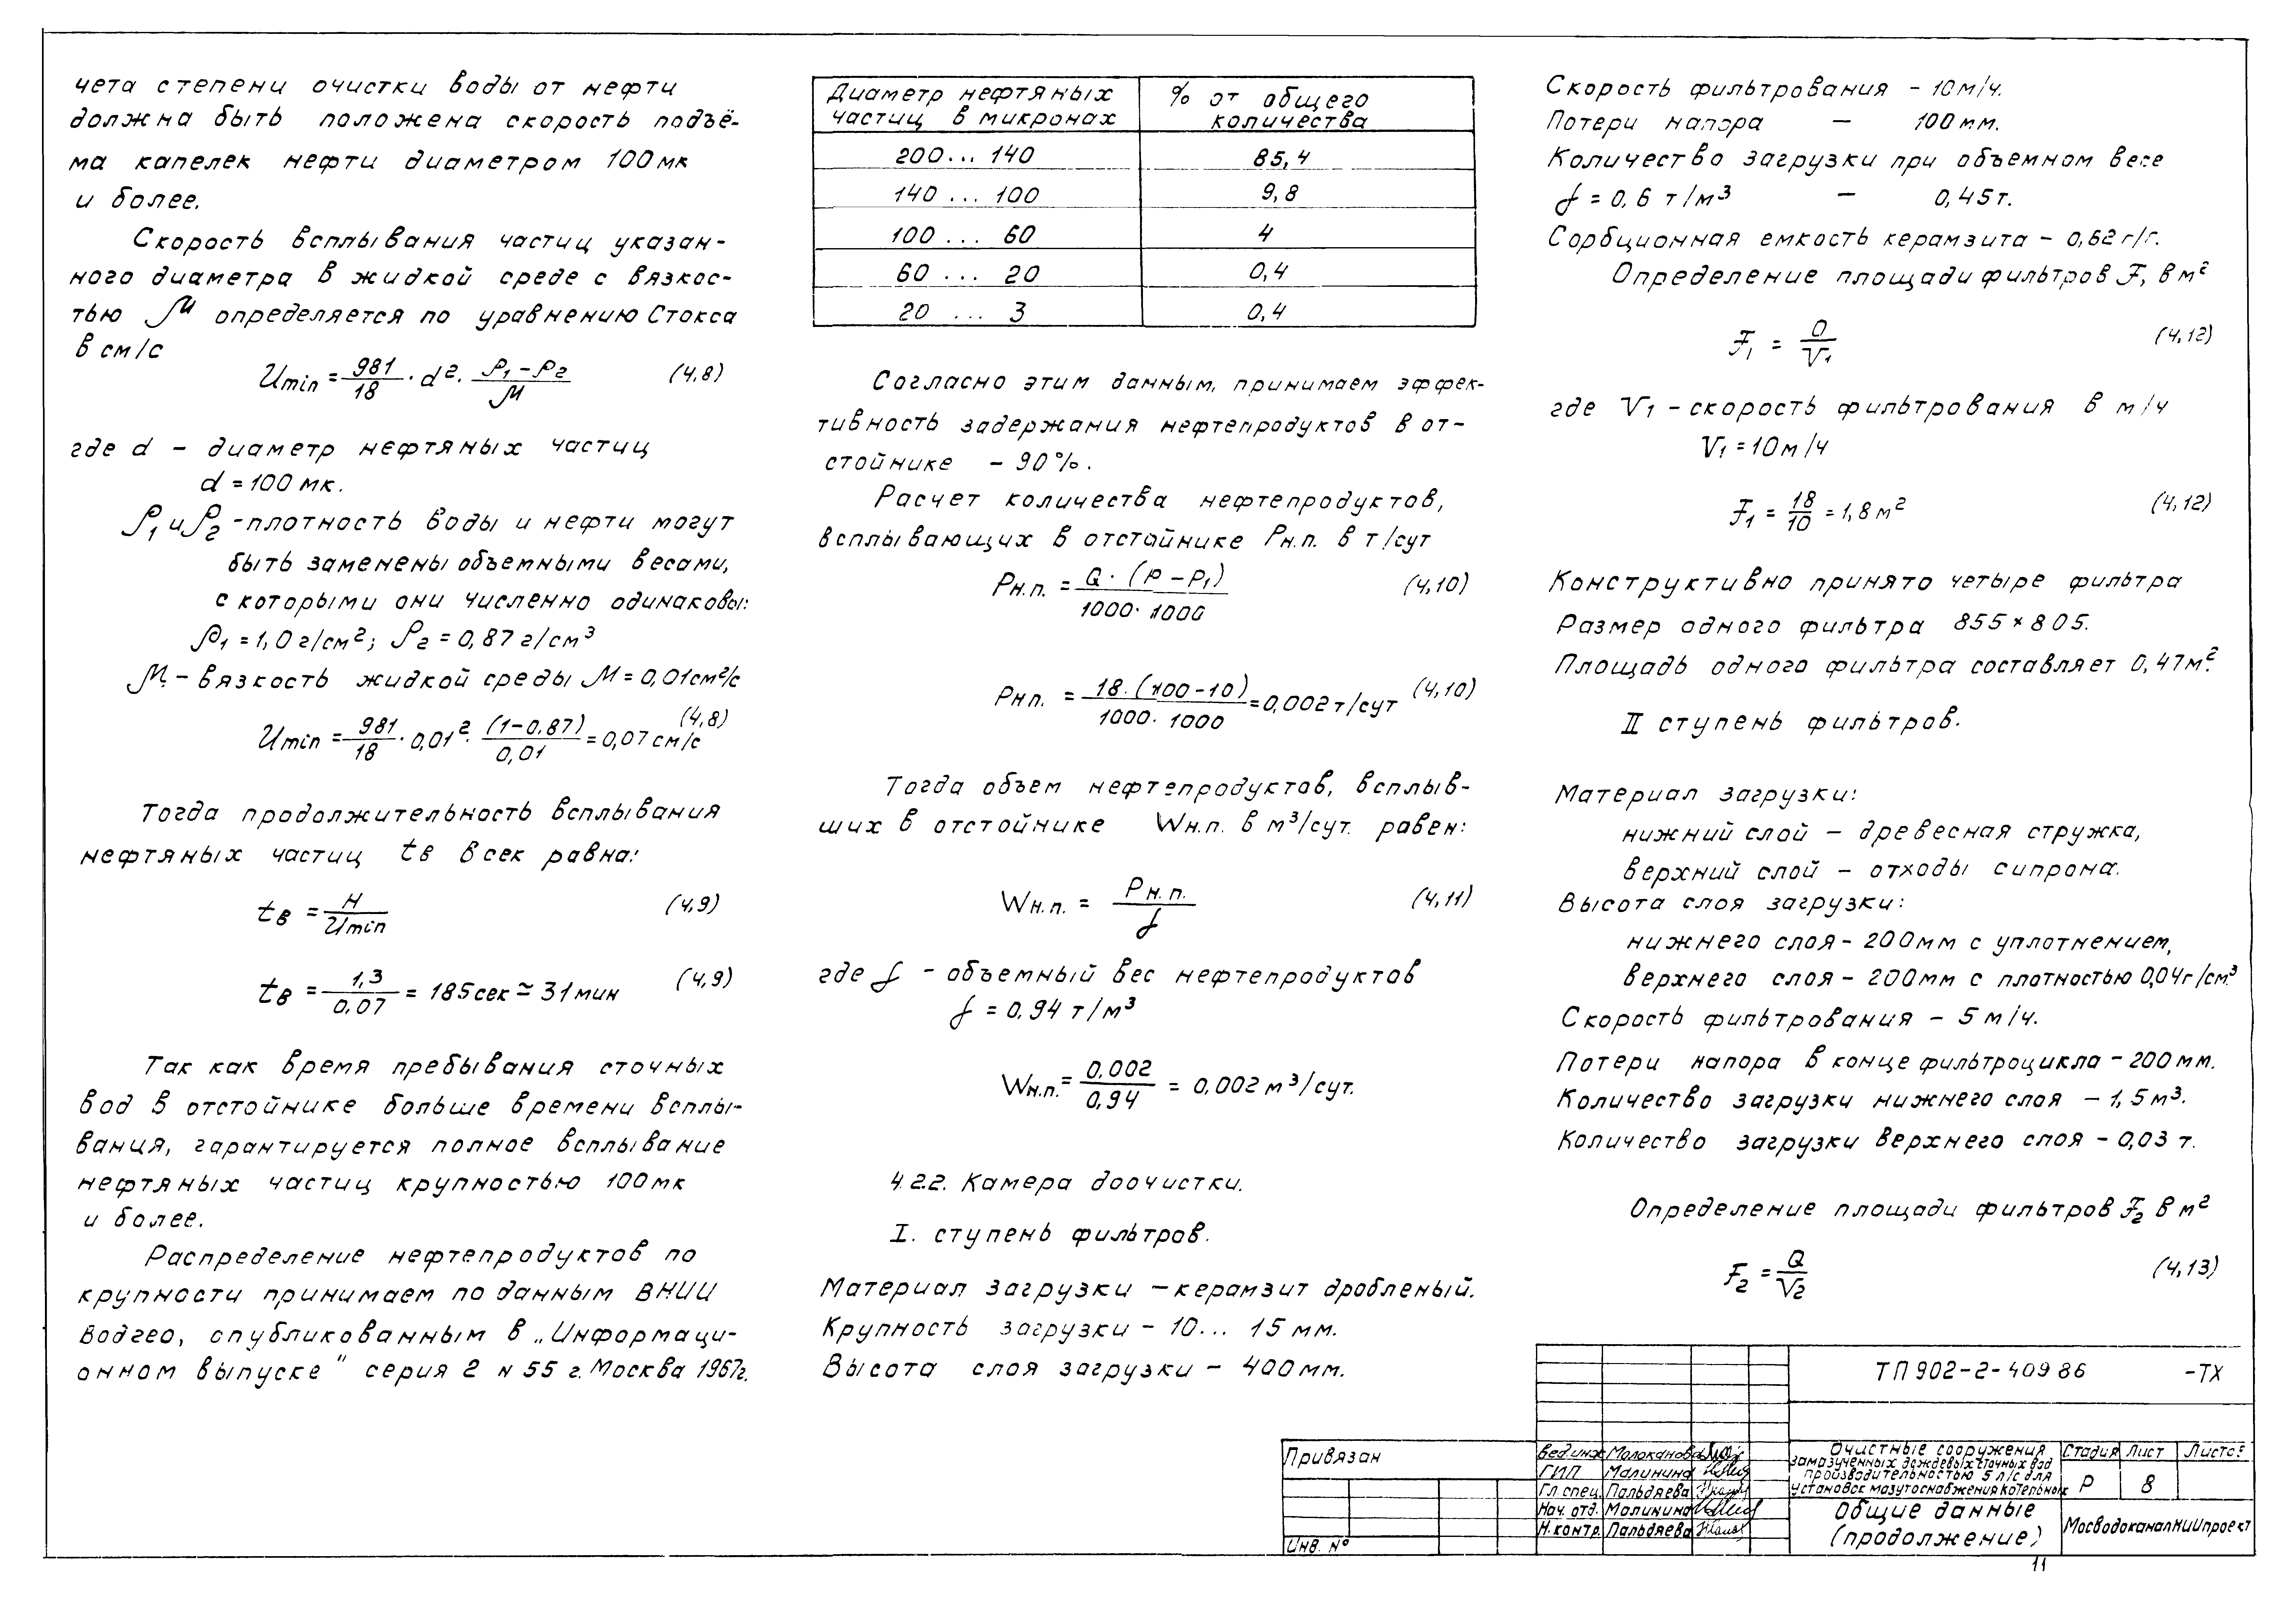 чета степени очистки воды от нефти
должна быть положена скорость подъё-
ма капелек нефти диаметром 100мк
и более.
Скорость всплывания частиц указан-
ного диаметра в жидкой среде с вязкос-
тью μ определяется по уравнению Стокса
в см/с
Umin = 981/18 · d². (ρ1-ρ2)/μ (4,8)
где d - диаметр нефтяных частиц
d = 100 мк.
ρ1 и ρ2 - плотность воды и нефти могут
быть заменены объемными весами,
с которыми они численно одинаковы:
ρ1 = 1,0 г/см²; ρ2 = 0,87 г/см³
μ - вязкость жидкой среды μ = 0,01см²/с
Umin = 981/18 · 0,01². (1-0,87)/0,01 = 0,07 см/с (4,8)
Тогда продолжительность всплывания
нефтяных частиц tв в сек равна:
tв = H/Umin (4,9)
tв = 1,3/0,07 = 185 сек ≃ 31 мин (4,9)
Так как время пребывания сточных
вод в отстойнике больше времени всплы-
вания, гарантируется полное всплывание
нефтяных частиц крупностью 100мк
и более.
Распределение нефтепродуктов по
крупности принимаем по данным ВНИИ
Водгео, опубликованным в „Информаци-
онном выпуске" серия 2 н 55 г. Москва 1967г.
Диаметр нефтяных частиц в микронах | % от общего количества
200... 140 | 85,4
140 ... 100 | 9,8
100 ... 60 | 4
60 ... 20 | 0,4
20 ... 3 | 0,4
Согласно этим данным, принимаем эффек-
тивность задержания нефтепродуктов в от-
стойнике - 90%.
Расчет количества нефтепродуктов,
всплывающих в отстойнике Рн.п. в т/сут
Рн.п. = Q· (P-P1)/1000· 1000 (4,10)
Рн.п. = 18. (100-10)/1000. 1000 = 0,002 т/сут (4,10)
Тогда объем нефтепродуктов, всплыв-
ших в отстойнике Wн.п. в м³/сут. равен:
Wн.п. = Рн.п./γ (4,11)
где γ - объемный вес нефтепродуктов
γ = 0,94 т/м³
Wн.п. = 0,002/0,94 = 0,002 м³/сут.
4.2.2. Камера доочистки.
I. ступень фильтров.
Материал загрузки - керамзит дробленый.
Крупность загрузки - 10... 15 мм.
Высота слоя загрузки - 400мм.
Скорость фильтрования - 10м/ч.
Потери напора - 100мм.
Количество загрузки при объемном весе
γ = 0,6 т/м³ - 0,45т.
Сорбционная емкость керамзита - 0,62 г/г.
Определение площади фильтров F, в м²
F1 = Q/V1 (4,12)
где V1 - скорость фильтрования в м/ч
V1 = 10 м/ч
F1 = 18/10 = 1,8 м² (4,12)
Конструктивно принято четыре фильтра
Размер одного фильтра 855×805.
Площадь одного фильтра составляет 0,47м².
II ступень фильтров.
Материал загрузки:
нижний слой - древесная стружка,
верхний слой - отходы сипрона.
Высота слоя загрузки:
нижнего слоя - 200мм с уплотнением,
верхнего слоя - 200мм с плотностью 0,04г/см³
Скорость фильтрования - 5 м/ч.
Потери напора в конце фильтроцикла - 200мм.
Количество загрузки нижнего слоя - 1,5м³.
Количество загрузки верхнего слоя - 0,03 т.
Определение площади фильтров F2 в м²
F2 = Q/V2 (4,13)
ТП 902-2-409 86 -ТХ
Привязан
Инв. №
Вед.инж Молоканова
ГИП Малинина
Гл спец. Пальдяева
Нач. отд. Малинина
Н.контр. Пальдяева
Очистные сооружения
замазученных дождевых сточных вод
производительностью 5 л/с для
установок мазутоснабжения котельных
Стадия Лист Листов
Р 8
Общие данные
(продолжение)
МосводоканалНИИпроект
11